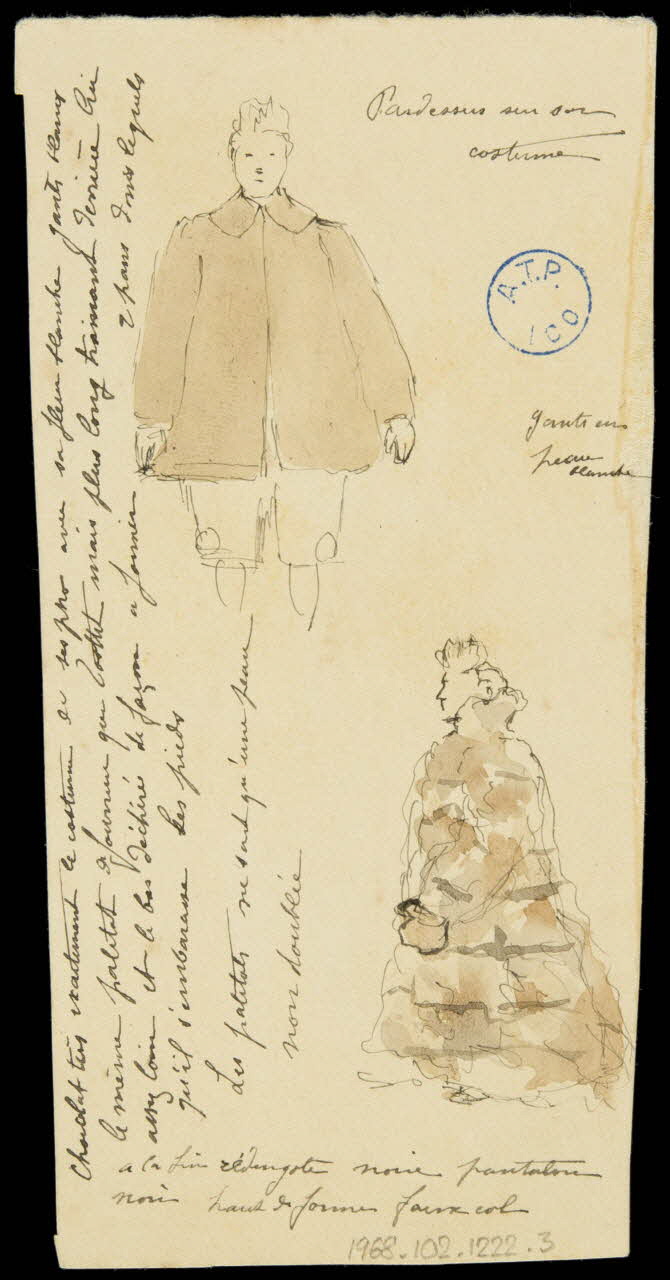 Pardessus sur son
costume
A.T.P.
ICO
gants en
peau
blanche
Chocolat très exactement le costume de ses pho avec sa fleur blanche gants blancs
le même paletot de fourrure que Footit mais plus long trainant derrière lui
assez loin et le bas déchiré de façon a former 2 pans dans lesquels
qu'il s'embarrasse les pieds
Les paletots ne sont qu'une peau
non doublée
a la fin rédingote noire pantalon
noir haut de forme faux col
1968.102.1222.3